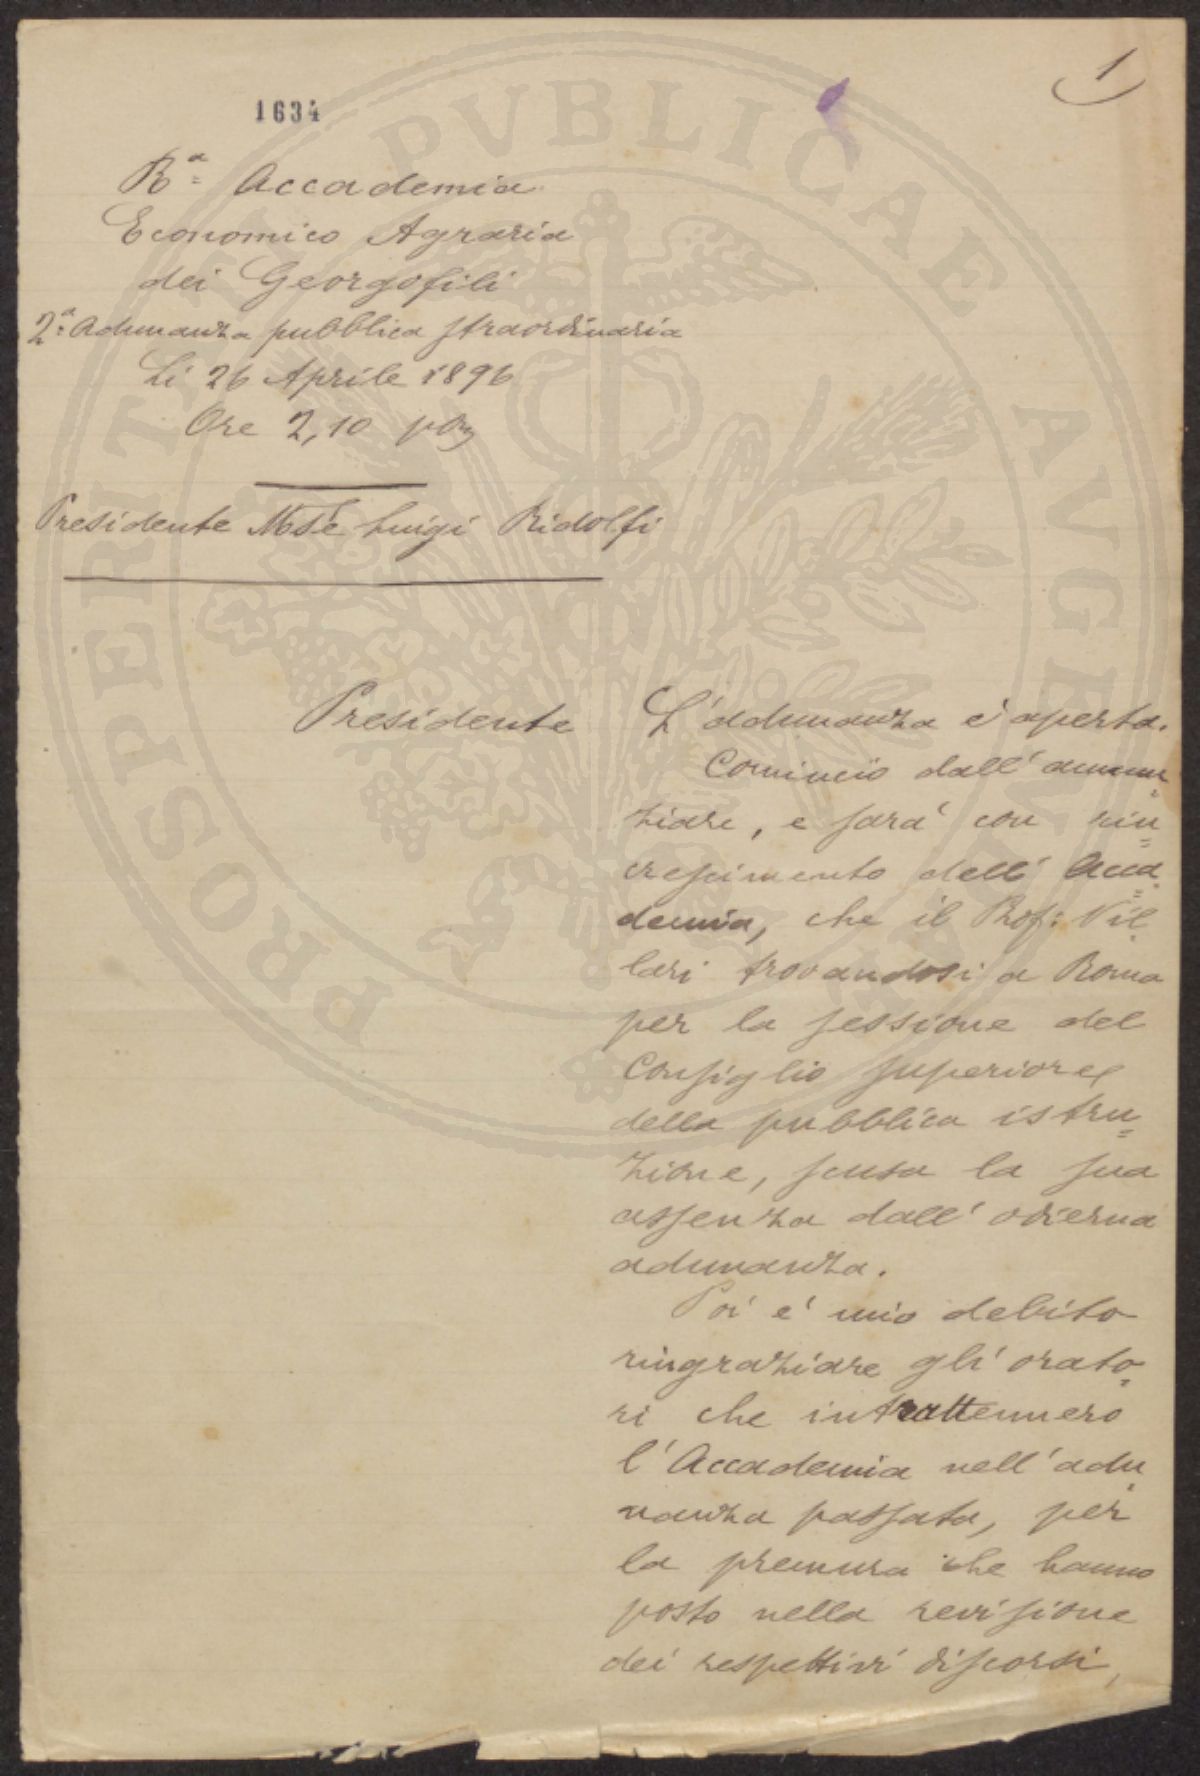 1
1634
Rª Accademia
Economico Agraria
dei Georgofili
2ª Adunanza pubblica straordinaria
Li 26 Aprile 1896
Ore 2,10 pom
Presidente Mse Luigi Ridolfi
Presidente
L'adunanza è aperta.
Comincio dall'annun=
ziare, e sarà con rin=
crescimento dell'Acca=
demia, che il Prof: Vil=
lari trovandosi a Roma
per la sessione del
Consiglio superiore
della pubblica istru=
zione, scusa la sua
assenza dall'odierna
adunanza.
Poi é mio debito
ringraziare gli orato=
ri che intrattennero
l'Accademia nell'adu=
nanza passata, per
la premura che hanno
posto nella revisione
dei respettivi discorsi,
PROSPERITATI PVBLICAE AVGENDAE